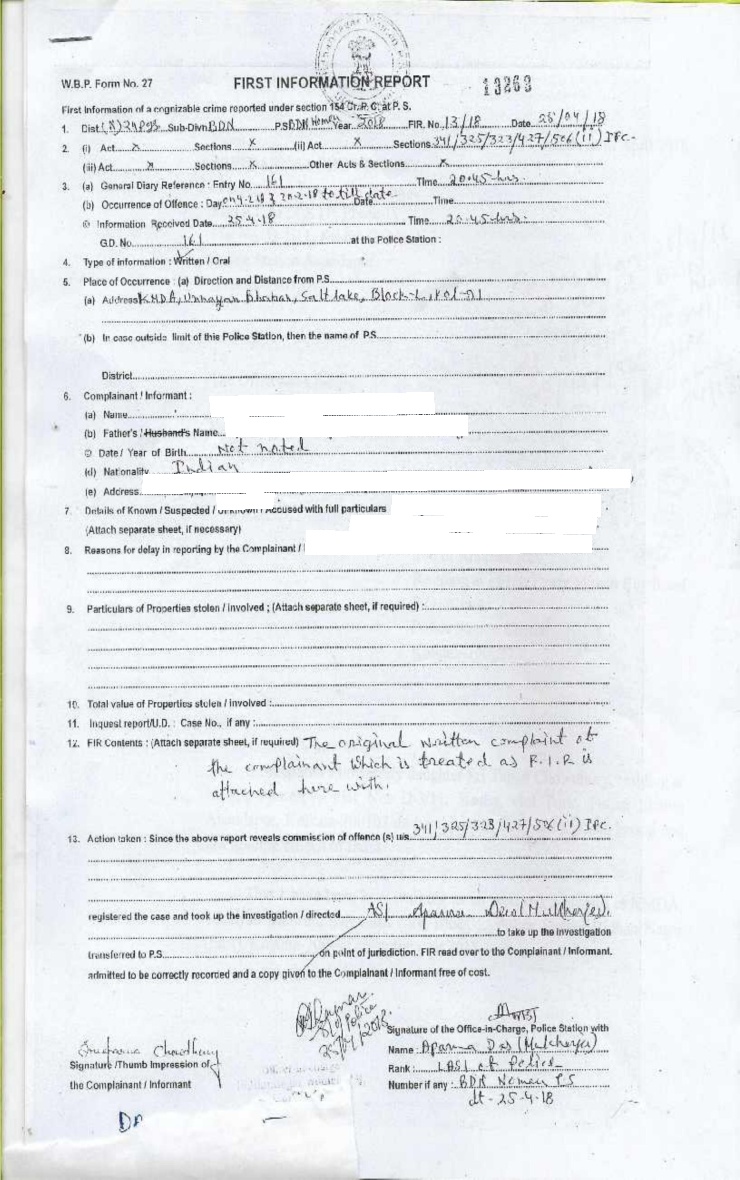 W.B.P. Form No. 27
FIRST INFORMATION REPORT
13263
First Information of a cognizable crime reported under section 154 Cr. P. C. at P. S.
1. Dist (N) 24 PGS Sub-Divn BDN P.S BDN Women Year 2018 FIR. No. 13/18 Date 25/04/18
2. (i) Act x Sections x (ii) Act x Sections 341/325/323/427/506(ii) IPC.
(iii) Act x Sections x Other Acts & Sections x
3. (a) General Diary Reference : Entry No. 161 Time 20.45 hrs.
(b) Occurrence of Offence : Day on 9-2-18 & 20-2-18 to till date Date Time
© Information Received Date 25.4.18 Time 20.45 hrs.
G.D. No. 161 at the Police Station :
4. Type of information : Written / Oral
5. Place of Occurrence : (a) Direction and Distance from P.S.
(a) Address KMDA, Unnayan Bhaban, Salt lake, Block-L, Kol-91
(b) In case outside limit of this Police Station, then the name of P.S.
District
6. Complainant / Informant :
(a) Name
(b) Father's / Husband's Name
© Date / Year of Birth Not noted
(d) Nationality Indian
(e) Address
7. Details of Known / Suspected / Unknown / Accused with full particulars
(Attach separate sheet, if necessary)
8. Reasons for delay in reporting by the Complainant /
9. Particulars of Properties stolen / involved ; (Attach separate sheet, if required) :
10. Total value of Properties stolen / involved :
11. Inquest report/U.D. : Case No., if any :
12. FIR Contents : (Attach separate sheet, if required) The original written complaint of
the complainant which is treated as F.I.R is
attached here with.
13. Action taken : Since the above report reveals commission of offence (s) u/s. 341/325/323/427/506(ii) IPC.
registered the case and took up the investigation / directed ASI Aparna Das (Mukherjee).
to take up the investigation
transferred to P.S. on point of jurisdiction. FIR read over to the Complainant / Informant.
admitted to be correctly recorded and a copy given to the Complainant / Informant free of cost.
SI of Police
25/04/2018
Signature of the Office-in-Charge, Police Station with
Chowdhury
Name : Aparna Das (Mukherjee)
Signature /Thumb Impression of
Rank : LASI of Police
the Complainant / Informant
Number if any : BDN Women PS
dt - 25-4-18